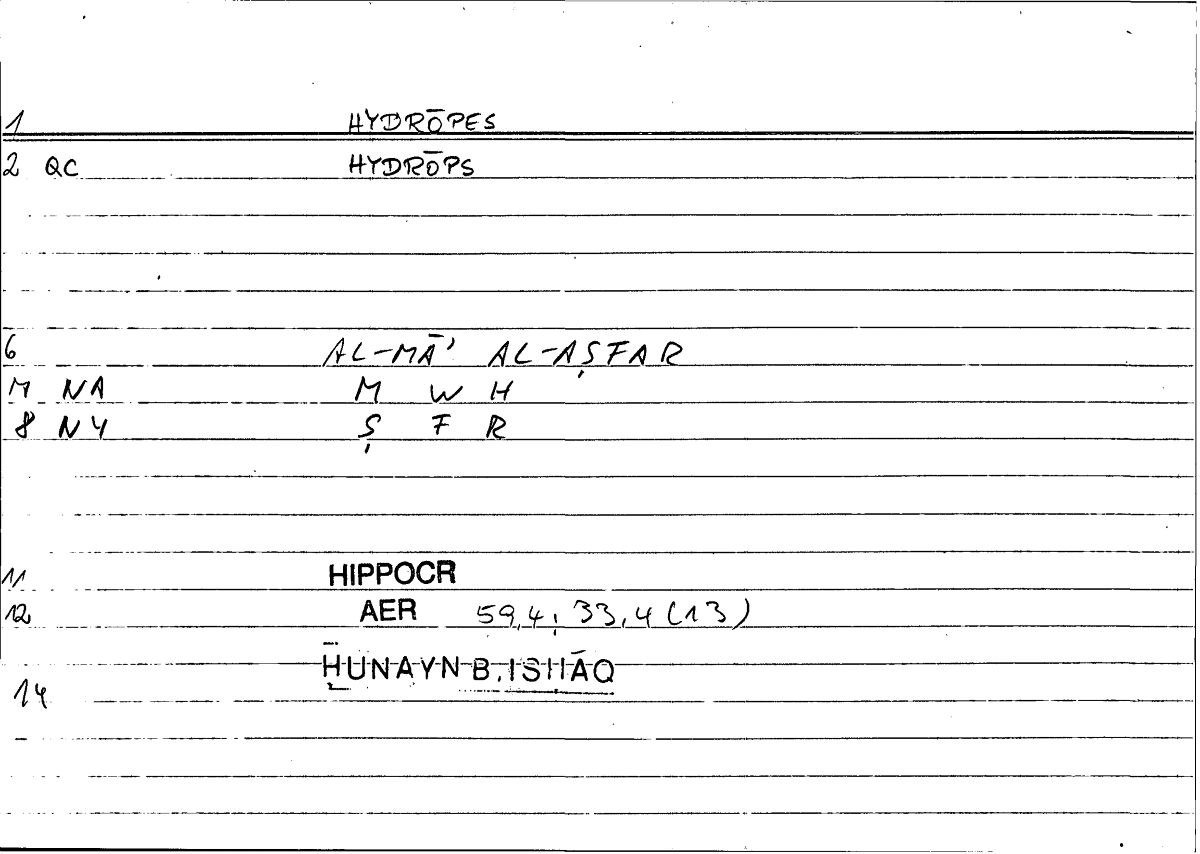 1 HYDRŌPES
2 QC HYDRŌPS
6 AL-MĀʾ AL-AṢFAR
M NA M W H
8 NY Ṣ F R
11 HIPPOCR
12 AER 59,4; 33,4 (13)
ḤUNAYN B. ISḤĀQ
14